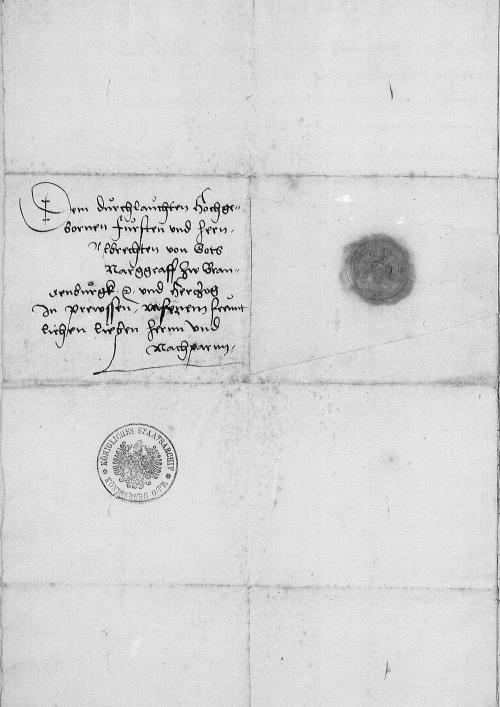 Dem durchlauchten Hochge-
bornen fursten und hern
Albrechten von Gots
Marggraff zw Bran-
denburgk ꝛc und Hertzog
In prewssen, unserem freunt
lichen lieben herrn und
Nachparnn.
KÖNIGLICHES STAATSARCHIV
KÖNIGSBERG O./PR.